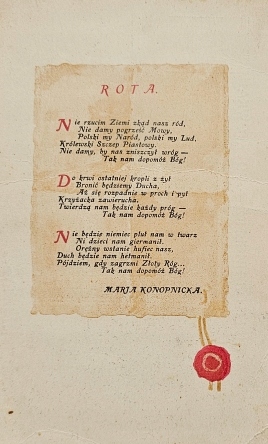 ROTA.
Nie rzucim Ziemi zkąd nasz ród,
Nie damy pogrześć Mowy,
Polski my Naród, polski my Lud,
Królewski Szczep Piastowy.
Nie damy, by nas zniszczył wróg —
Tak nam dopomóż Bóg!
Do krwi ostatniej kropli z żył
Bronić będziemy Ducha,
Aż się rozpadnie w proch i pył
Krzyżacka zawierucha.
Twierdzą nam będzie każdy próg —
Tak nam dopomóż Bóg!
Nie będzie niemiec pluł nam w twarz
Ni dzieci nam giermanił.
Orężny wstanie hufiec nasz,
Duch będzie nam hetmanił.
Pójdziem, gdy zagrzmi Złoty Róg...
Tak nam dopomóż Bóg!
MARJA KONOPNICKA.